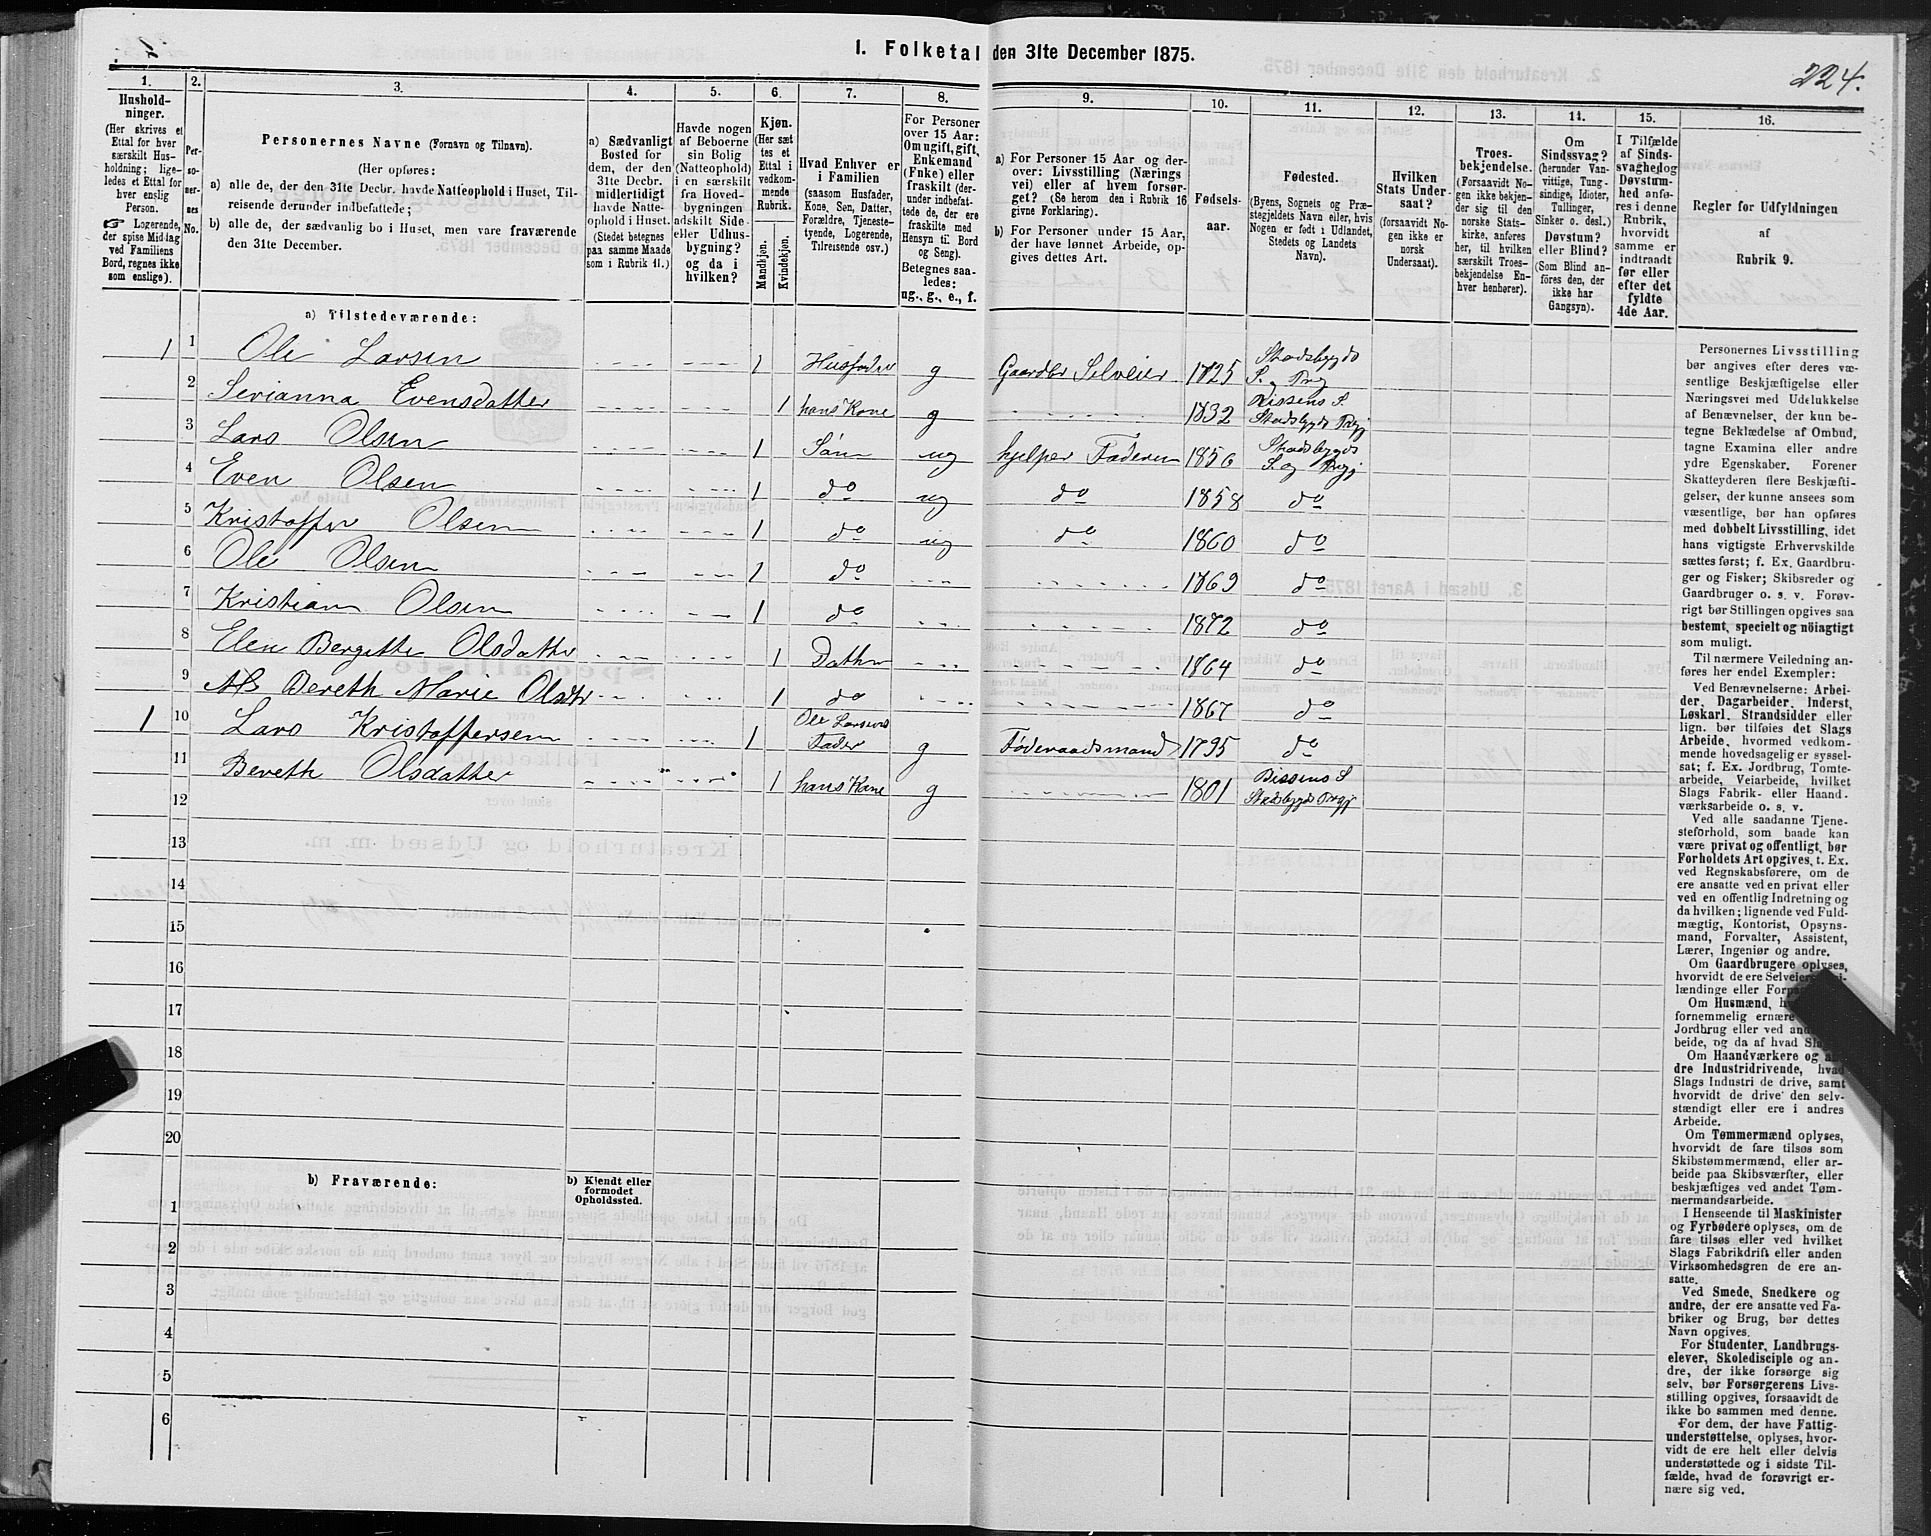 1. Folketal den 31te December 1875.
224.
1.
Hushold-
ninger.
(Her skrives et
Ettal for hver
særskilt Hus-
holdning; lige-
ledes et Ettal for
hver enslig
Person.
☞ Logerende,
der spise Middag
ved Familiens
Bord, regnes ikke
som enslige).
2.
Per-
so-
ner-
nes
No.
3.
Personernes Navne (Fornavn og Tilnavn).
(Her opføres:
a) alle de, der den 31te Decbr. havde Natteophold i Huset, Til-
reisende derunder indbefattede;
b) alle de, der sædvanlig bo i Huset, men vare fraværende
den 31te December.
4.
a) Sædvanligt
Bosted for
dem, der den
31te Decbr.
midlertidigt
havde Natte-
ophold i Huset.
(Stedet betegnes
paa samme Maade
som i Rubrik 11.)
5.
Havde nogen
af Beboerne
sin Bolig
(Natteophold)
i en særskilt
fra Hoved-
bygningen
adskilt Side-
eller Udhus-
bygning?
og da i
hvilken?
6.
Kjøn.
(Her sæt-
tes et
Ettal i
vedkom-
mende
Rubrik.
Mandkjøn.
Kvindekjøn.
7.
Hvad Enhver er
i Familien
(saasom Husfader,
Kone, Søn, Datter,
Forældre, Tjeneste-
tyende, Logerende,
Tilreisende osv.)
8.
For Personer
over 15 Aar:
Om ugift, gift,
Enkemand
(Enke) eller
fraskilt (der-
under indbefat-
tede de, der ere
fraskilte med
Hensyn til Bord
og Seng).
Betegnes saa-
ledes:
ug., g., e., f.
9.
a) For Personer 15 Aar og der-
over: Livsstilling (Nærings
vei) eller af hvem forsør-
get? (Se herom den i Rubrik 16
givne Forklaring).
b) For Personer under 15 Aar,
der have lønnet Arbeide, op-
gives dettes Art.
10.
Fødsels-
aar.
11.
Fødested.
(Byens, Sognets og Præ-
stegjeldets Navn eller, hvis
Nogen er født i Udlandet,
Stedets og Landets
Navn).
12.
Hvilken
Stats Under-
saat?
(forsaavidt No-
gen ikke er
norsk
Undersaat).
13.
Troes-
bekjendelse.
(Forsaavidt No-
gen ikke bekjen-
der sig til den
norske Stats-
kirke, anføres
her, til hvilken
særskilt Troes-
bekjendelse En-
hver henhører).
14.
Om
Sindssvag?
(herunder Van-
vittige, Tung-
sindige, Idioter,
Tullinger,
Sinker o. desl.)
Døvstum?
eller Blind?
(Som Blind an-
føres den, der
ikke har
Gangsyn).
15.
I Tilfælde
af Sinds-
svaghed og
Døvstum-
hed anfø-
res i denne
Rubrik,
hvorvidt
samme er
indtraadt
før eller
efter det
fyldte
4de Aar.
16.
Regler for Udfyldningen
af
Rubrik 9.
a) Tilstedeværende:
1 1 Ole Larsen 1 Husfader g Gaardbr Selveier 1825 Stadsbygds S. og Prg
2 Serianna Evensdatter 1 hans Kone g 1832 Rissens S Stadsbygds Prgj
3 Lars Olsen 1 Søn ug hjelper Faderen 1856 Stadsbygds S. og Prgj
4 Even Olsen 1 do ug do 1858 do
5 Kristoffer Olsen 1 do ug do 1860 do
6 Ole Olsen 1 do 1869 do
7 Kristian Olsen 1 do 1872 do
8 Elen Bergitte Olsdatter 1 Datter 1864 do
9 Bereth Marie Olsdtr 1 do 1867 do
1 10 Lars Kristoffersen 1 Ole Larsens Fader g Føderaadsmand 1795 do
11 Bereth Olsdatter 1 hans Kone g 1801 Rissens S Stadsbygds Prgj
12
13
14
15
16
17
18
19
20
b) Fraværende:
b) Kjendt eller
formodet
Opholdssted.
1
2
3
4
5
6
Personernes Livsstilling
bør angives efter deres væ-
sentlige Beskjæftigelse eller
Næringsvei med Udelukkelse
af Benævnelser, der kun be-
tegne Beklædelse af Ombud,
tagne Examina eller andre
ydre Egenskaber. Forener
Skatteyderen flere Beskjæfti-
gelser, der kunne ansees som
væsentlige, bør han opføres
med dobbelt Livsstilling, idet
hans vigtigste Erhvervskilde
sættes først; f. Ex. Gaardbru-
ger og Fisker; Skibsreder og
Gaardbruger o. s. v. Forøv-
rigt bør Stillingen opgives saa
bestemt, specielt og nöiagtigt
som muligt.
Til nærmere Veiledning an-
føres her endel Exempler:
Ved Benævnelserne: Arbei-
der, Dagarbeider, Inderst,
Løskarl, Strandsidder eller
lign. bør tilføies det Slags
Arbeide, hvormed vedkom-
mende hovedsagelig er syssel-
sat; f. Ex. Jordbrug, Tomte-
arbeide, Veiarbeide, hvilket
Slags Fabrik- eller Haand-
værksarbeide o. s. v.
Ved alle saadanne Tjene-
steforhold, som baade kan
være privat og offentligt, bør
Forholdets Art opgives, t. Ex.
ved Regnskabsførere, om de
ere ansatte ved en privat eller
ved en offentlig Indretning og
da hvilken; lignende ved Fuld-
mægtig, Kontorist, Opsyns-
mand, Forvalter, Assistent,
Lærer, Ingeniør og andre.
Om Gaardbrugere oplyses,
hvorvidt de ere Selveiere,
lændinge eller
Om Husmænd,
fornemmelig ernære
Jordbrug eller ved
beide, og da af hvad
Om Haandværkere og an-
dre Industridrivende, hvad
Slags Industri de drive, samt
hvorvidt de drive den selv-
stændigt eller ere i andres
Arbeide.
Om Tømmermænd oplyses,
hvorvidt de fare tilsøs som
Skibstømmermænd, eller ar-
beide paa Skibsværfter, eller
beskjæftiges ved andet Tøm-
mermandsarbeide.
I Henseende til Maskinister
og Fyrbødere oplyses, om de
fare tilsøs eller ved hvilket
Slags Fabrikdrift eller anden
Virksomhedsgren de ere an-
satte.
Ved Smede, Snedkere og
andre, der ere ansatte ved Fa-
briker og Brug, bør dettes
Navn opgives.
For Studenter, Landbrugs-
elever, Skoledisciple og an-
dre, der ikke forsørge sig
selv, bør Forsørgerens Livs-
stilling opgives, forsaavidt de
ikke bo sammen med denne.
For dem, der have Fattig-
understøttelse, oplyses, hvor-
vidt de ere helt eller delvis
understøttede og i sidste Til-
fælde, hvad de forøvrigt er-
nære sig ved.